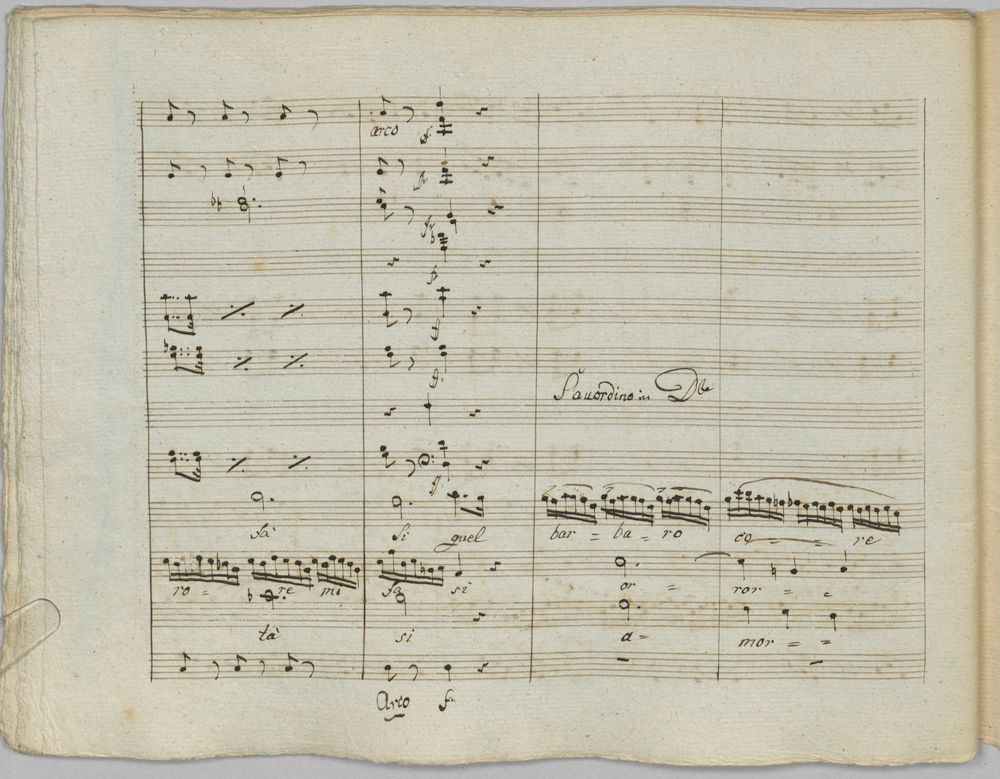 arco f.
f.
f.
f.
f.
f.
f.
fà si quel bar = ba = ro co = = re
ro = re mi fa si or = ror = =
tà si a = mor = =
Arco f.